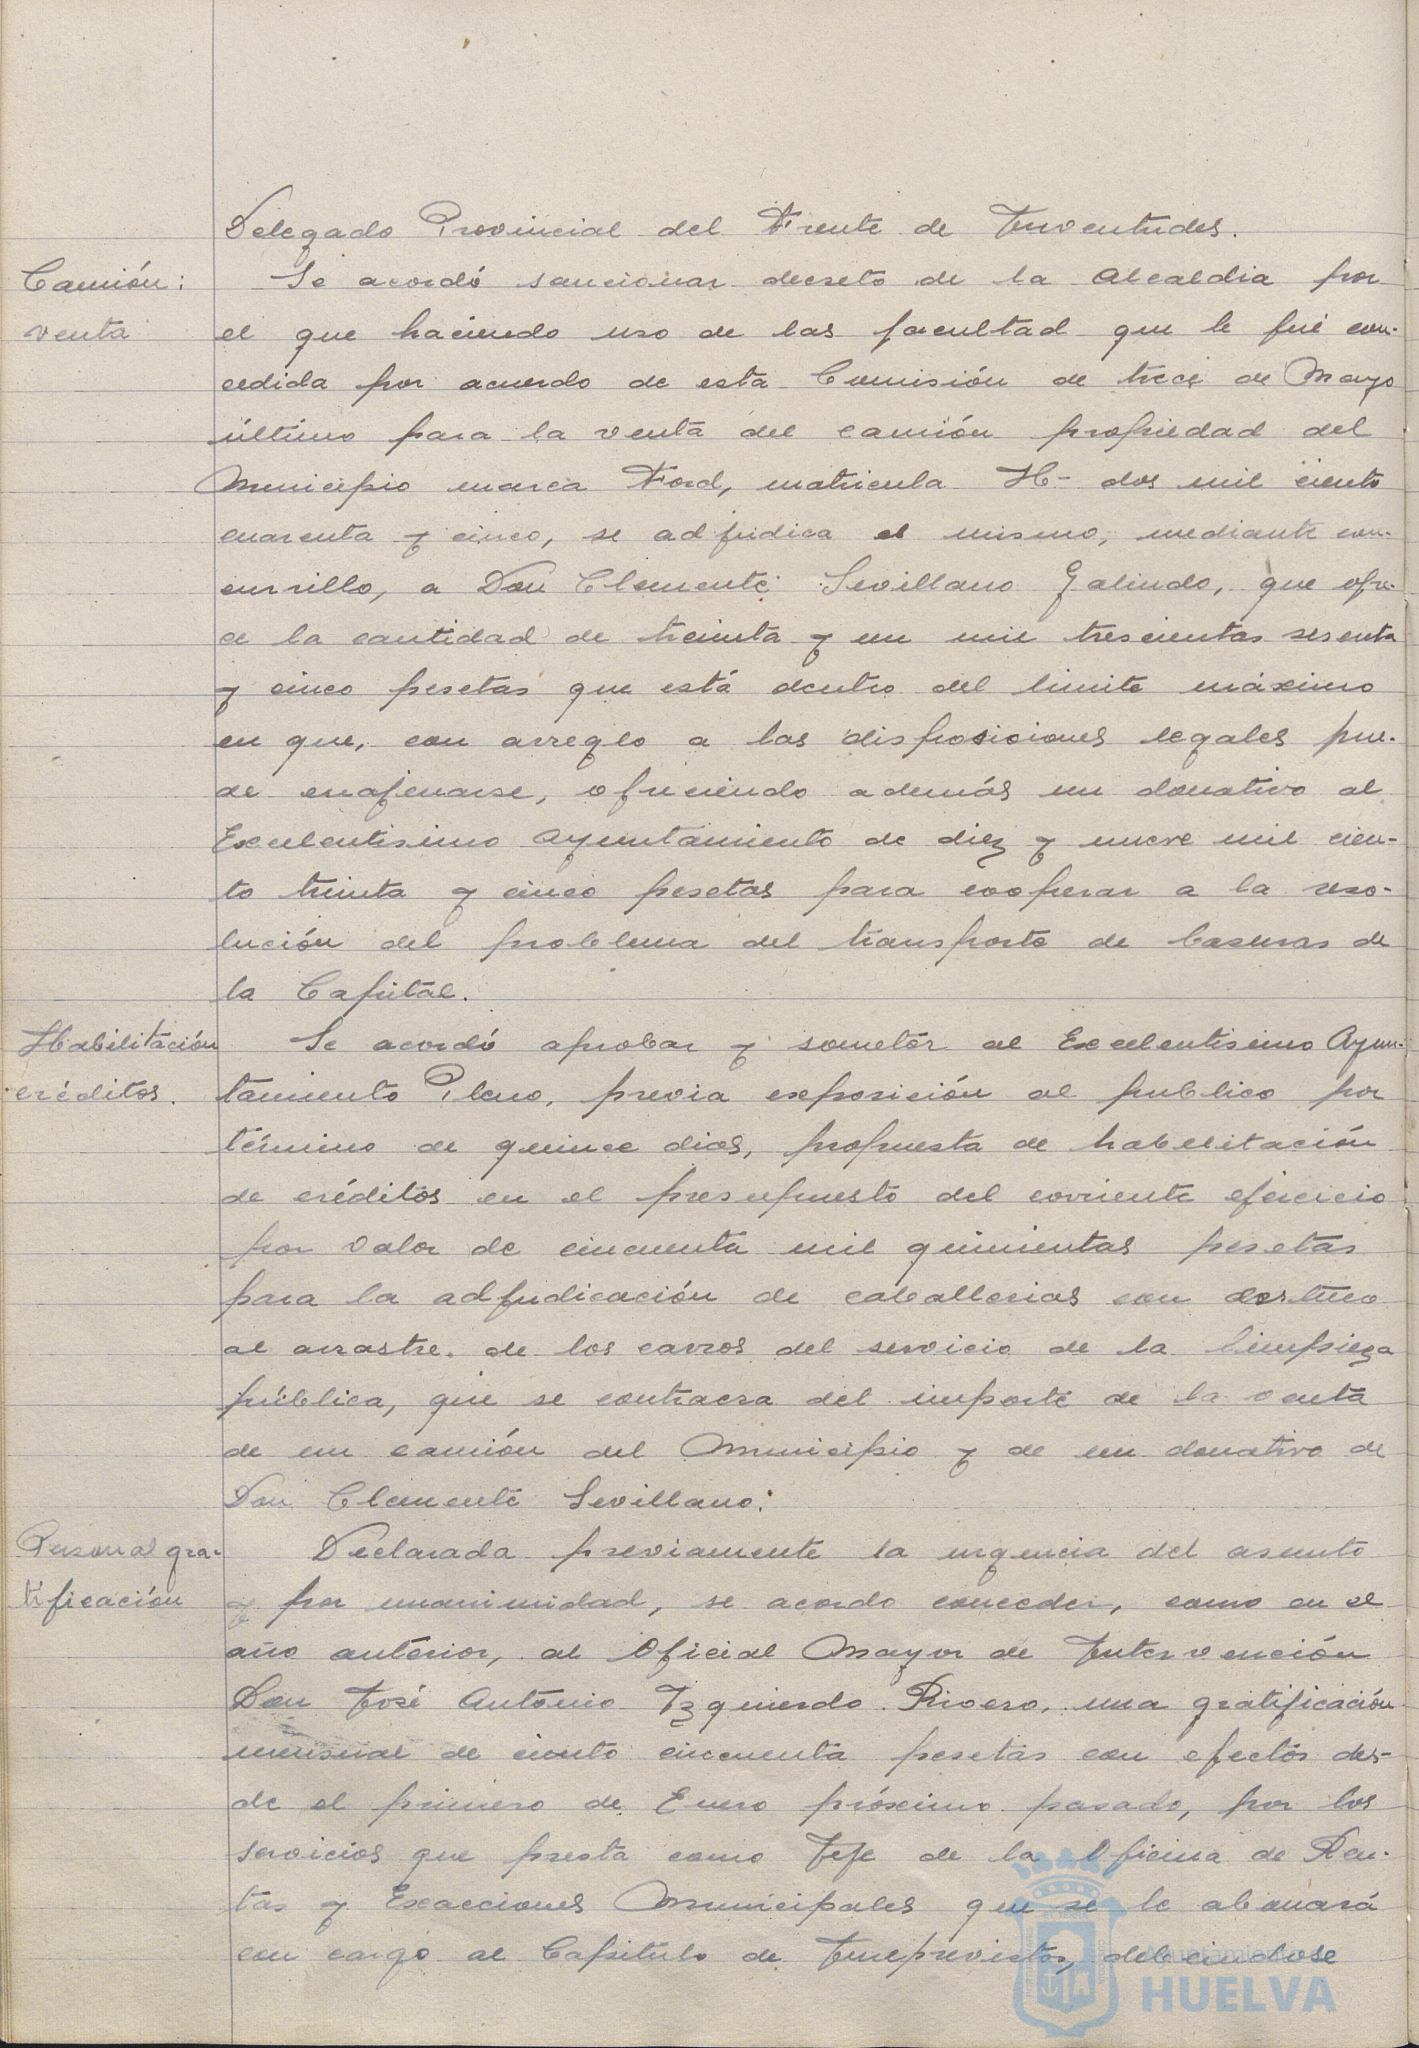 Delegado Provincial del Frente de Juventudes.
Camión: Se acordó sancionar decreto de la Alcaldia por
venta el que haciendo uso de las facultad que le fué con-
cedida por acuerdo de esta Comisión de trece de Mayo
último para la venta del camión propiedad del
Municipio marca Ford, matricula H- dos mil ciento
cuarenta y cinco, se adjudica el mismo, mediante con-
cursillo, a Don Clemente Sevillano Galindo, que ofre-
ce la cantidad de treinta y un mil trescientas sesenta
y cinco pesetas que está dentro del limite máximo
en que, con arreglo a las disposiciones legales pue-
de enajenarse, ofreciendo además un donativo al
Excelentisimo Ayuntamiento de diez y nueve mil cien-
to treinta y cinco pesetas para cooperar a la reso-
lución del problema del transporte de basuras de
la Capital.
Habilitación Se acordó aprobar y someter al Excelentisimo Ayun-
créditos. tamiento Pleno, previa exposición al publico por
término de quince dias, propuesta de habilitación
de créditos en el presupuesto del corriente ejercicio
por valor de cincuenta mil quinientas pesetas
para la adjudicación de caballerias con destino
al arrastre de los carros del servicio de la limpieza
pública, que se contraera del importe de la venta
de un camión del Municipio y de un donativo de
Don Clemente Sevillano.
Personal gra- Declarada previamente la urgencia del asunto
tificación y por unanimidad, se acordo conceder, como en el
año anterior, al Oficial Mayor de Intervención
Don José Antonio Izquierdo Rivero, una gratificación
mensual de ciento cincuenta pesetas con efectos des-
de el primero de Enero próximo pasado, por los
servicios que presta como Jefe de la Oficina de Ren-
tas y Exacciones Municipales que se le abonará
con cargo al Capitulo de Imprevistos, debiendose
Ayuntamiento
HUELVA